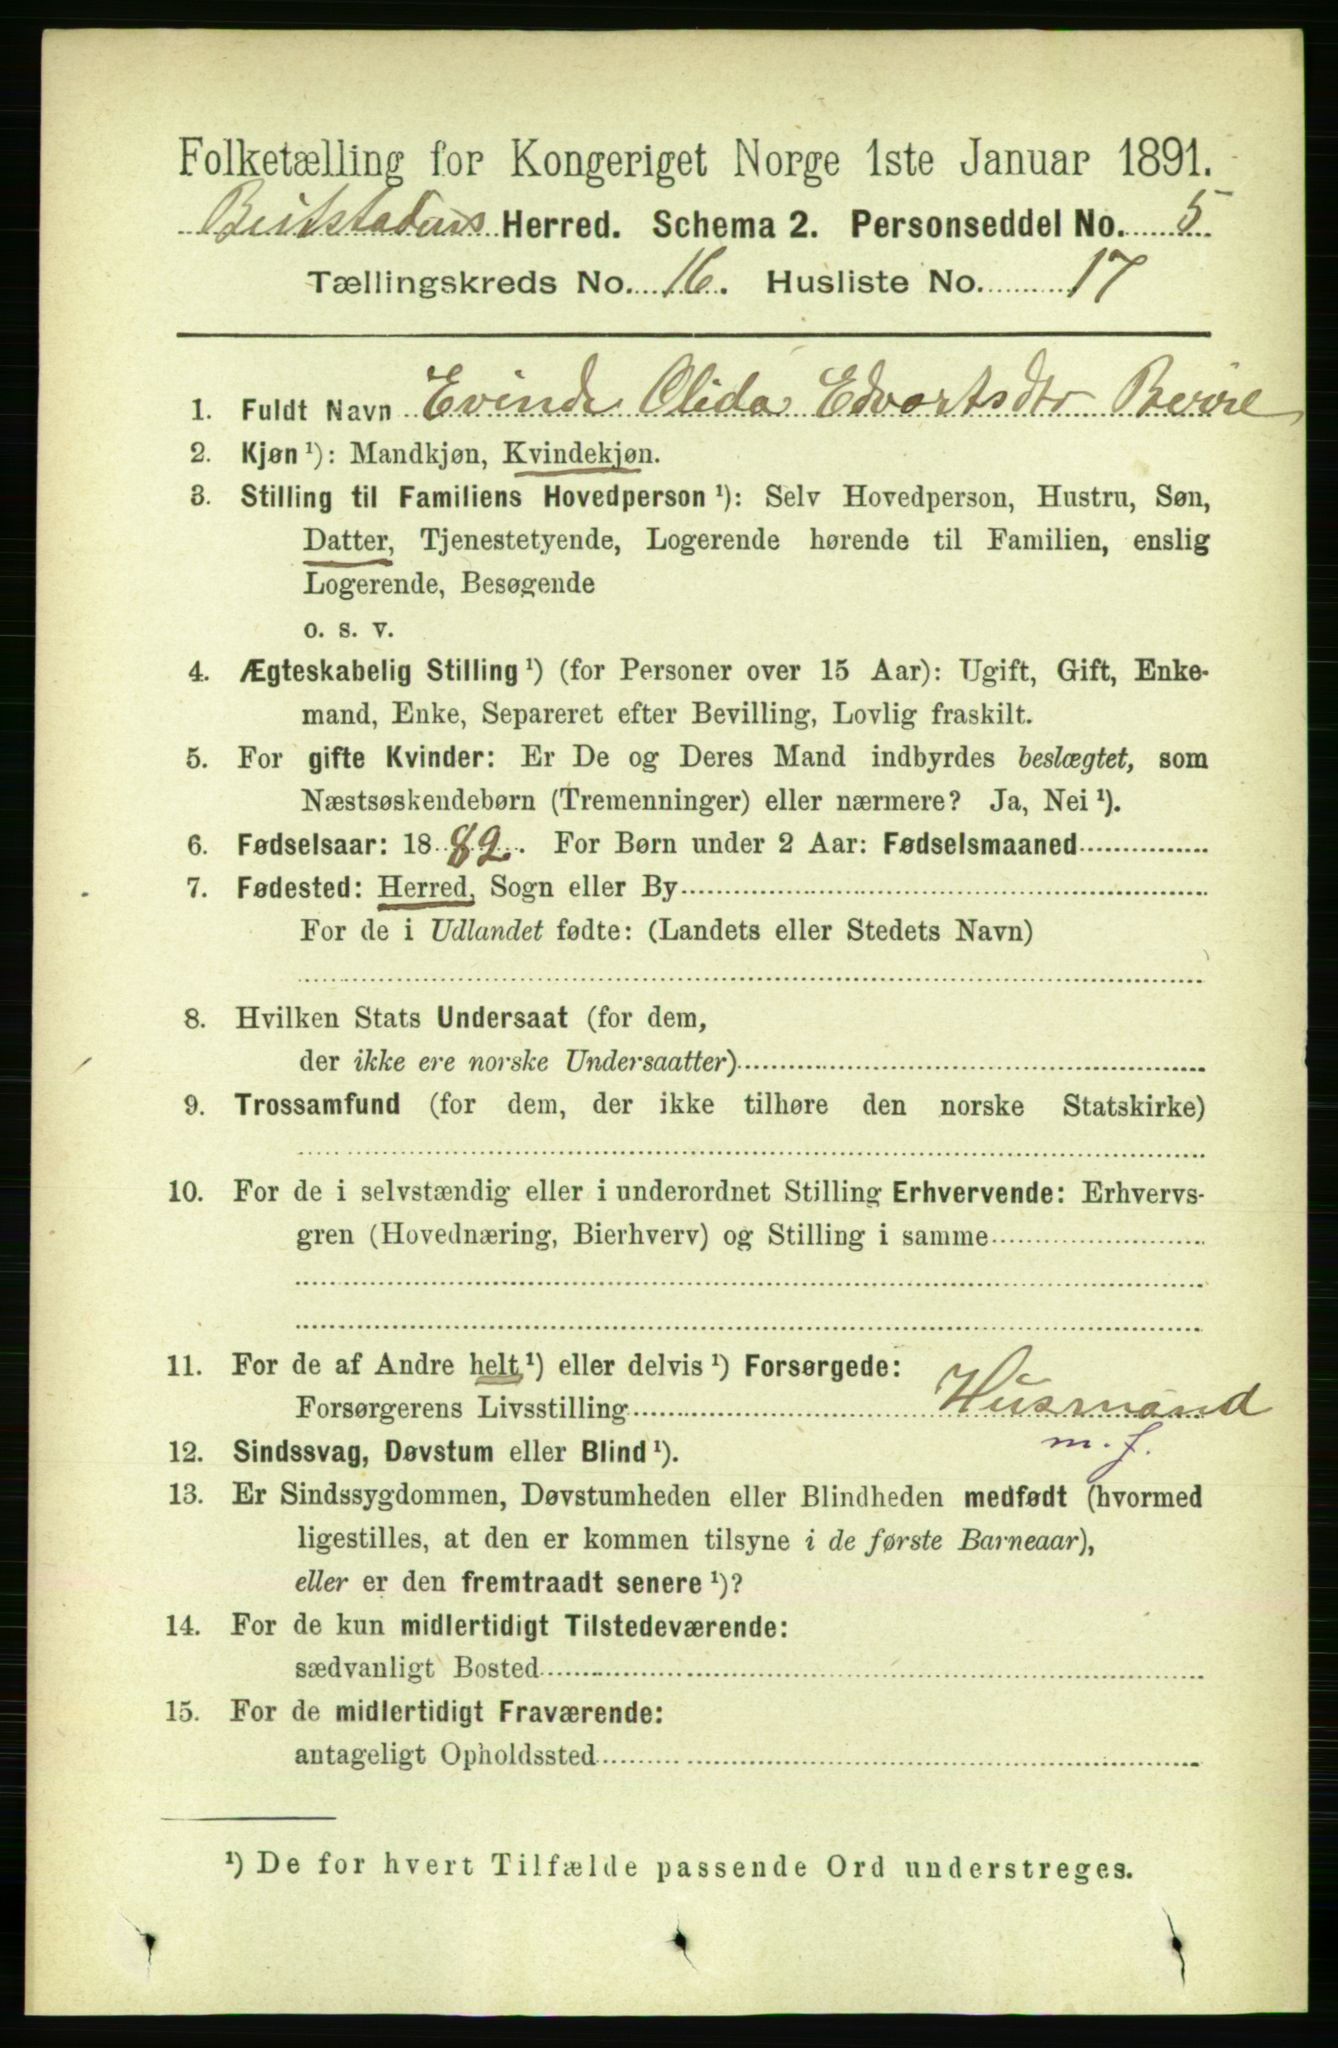 Folketælling for Kongeriget Norge 1ste Januar 1891.
Beitstadens Herred. Schema 2. Personseddel No. 5
Tællingskreds No. 16. Husliste No. 17
1. Fuldt Navn Evinde Olida Edvartsdtr
2. Kjøn ¹): Mandkjøn, Kvindekjøn.
3. Stilling til Familiens Hovedperson ¹): Selv Hovedperson, Hustru, Søn,
Datter, Tjenestetyende, Logerende hørende til Familien, enslig
Logerende, Besøgende
o. s. v.
4. Ægteskabelig Stilling ¹) (for Personer over 15 Aar): Ugift, Gift, Enke-
mand, Enke, Separeret efter Bevilling, Lovlig fraskilt.
5. For gifte Kvinder: Er De og Deres Mand indbyrdes beslægtet, som
Næstsøskendebørn (Tremenninger) eller nærmere? Ja, Nei ¹).
6. Fødselsaar: 1882. For Børn under 2 Aar: Fødselsmaaned
7. Fødested: Herred, Sogn eller By
For de i Udlandet fødte: (Landets eller Stedets Navn)
8. Hvilken Stats Undersaat (for dem,
der ikke ere norske Undersaatter)
9. Trossamfund (for dem, der ikke tilhøre den norske Statskirke)
10. For de i selvstændig eller i underordnet Stilling Erhvervende: Erhvervs-
gren (Hovednæring, Bierhverv) og Stilling i samme
11. For de af Andre helt ¹) eller delvis ¹) Forsørgede:
Forsørgerens Livsstilling Husmand
m. f.
12. Sindssvag, Døvstum eller Blind ¹).
13. Er Sindssygdommen, Døvstumheden eller Blindheden medfødt (hvormed
ligestilles, at den er kommen tilsyne i de første Barneaar),
eller er den fremtraadt senere ¹)?
14. For de kun midlertidigt Tilstedeværende:
sædvanligt Bosted
15. For de midlertidigt Fraværende:
antageligt Opholdssted
¹) De for hvert Tilfælde passende Ord understreges.